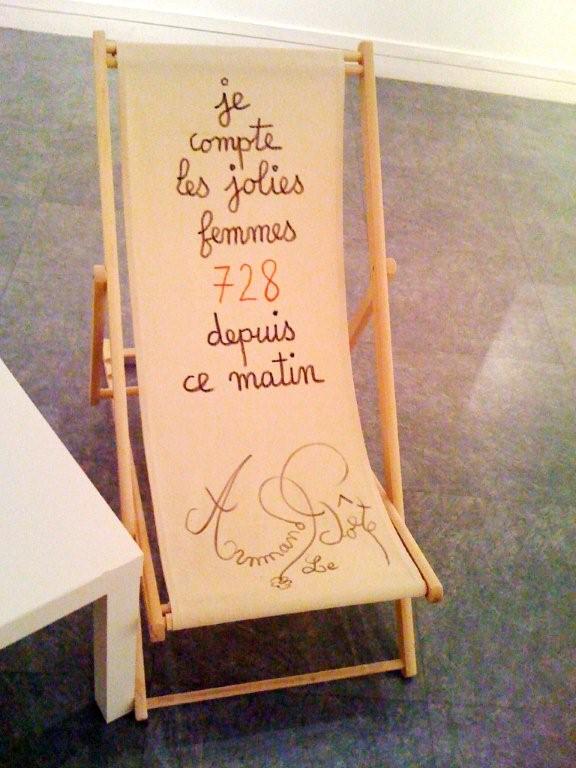 je
compte
les jolies
femmes
728
depuis
ce matin
Armand
Le
Poète